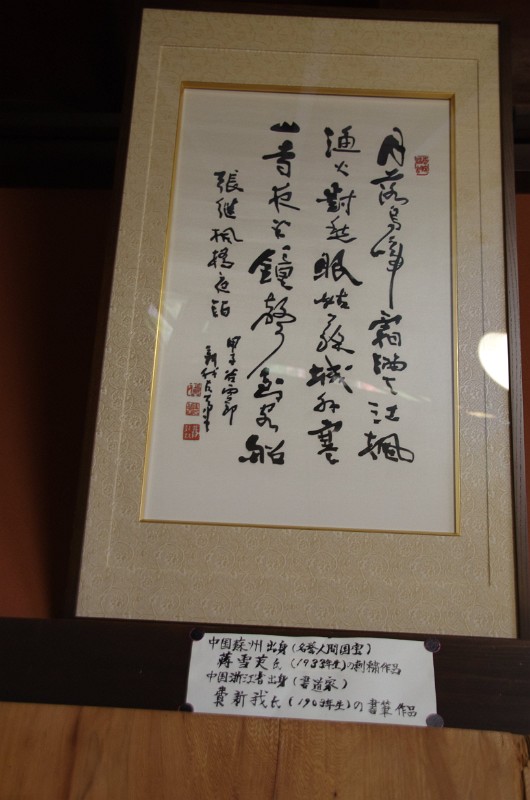 月落烏啼霜滿天江楓
漁火對愁眠姑蘇城外寒
山寺夜半鐘聲到客船
張継楓橋夜泊
甲子谷雨節
新我左筆
中国蘇州出身(名誉人間国宝)
蒋雪英氏(1933年生)の刺繍作品
中国浙江省出身(書道家)
費新我氏(1903年生)の書筆作品